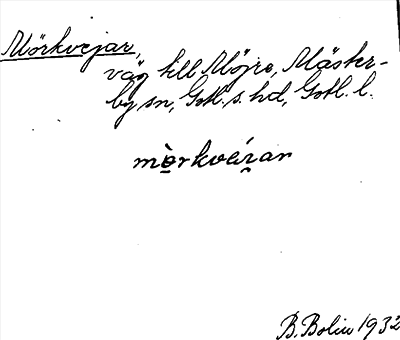 Mörkvejar,
väg till Möjre, Mäster-
by sn, Gotl. s. hd, Gotl. l.
mö̀rkvéi̯ar
B. Bolin 1932